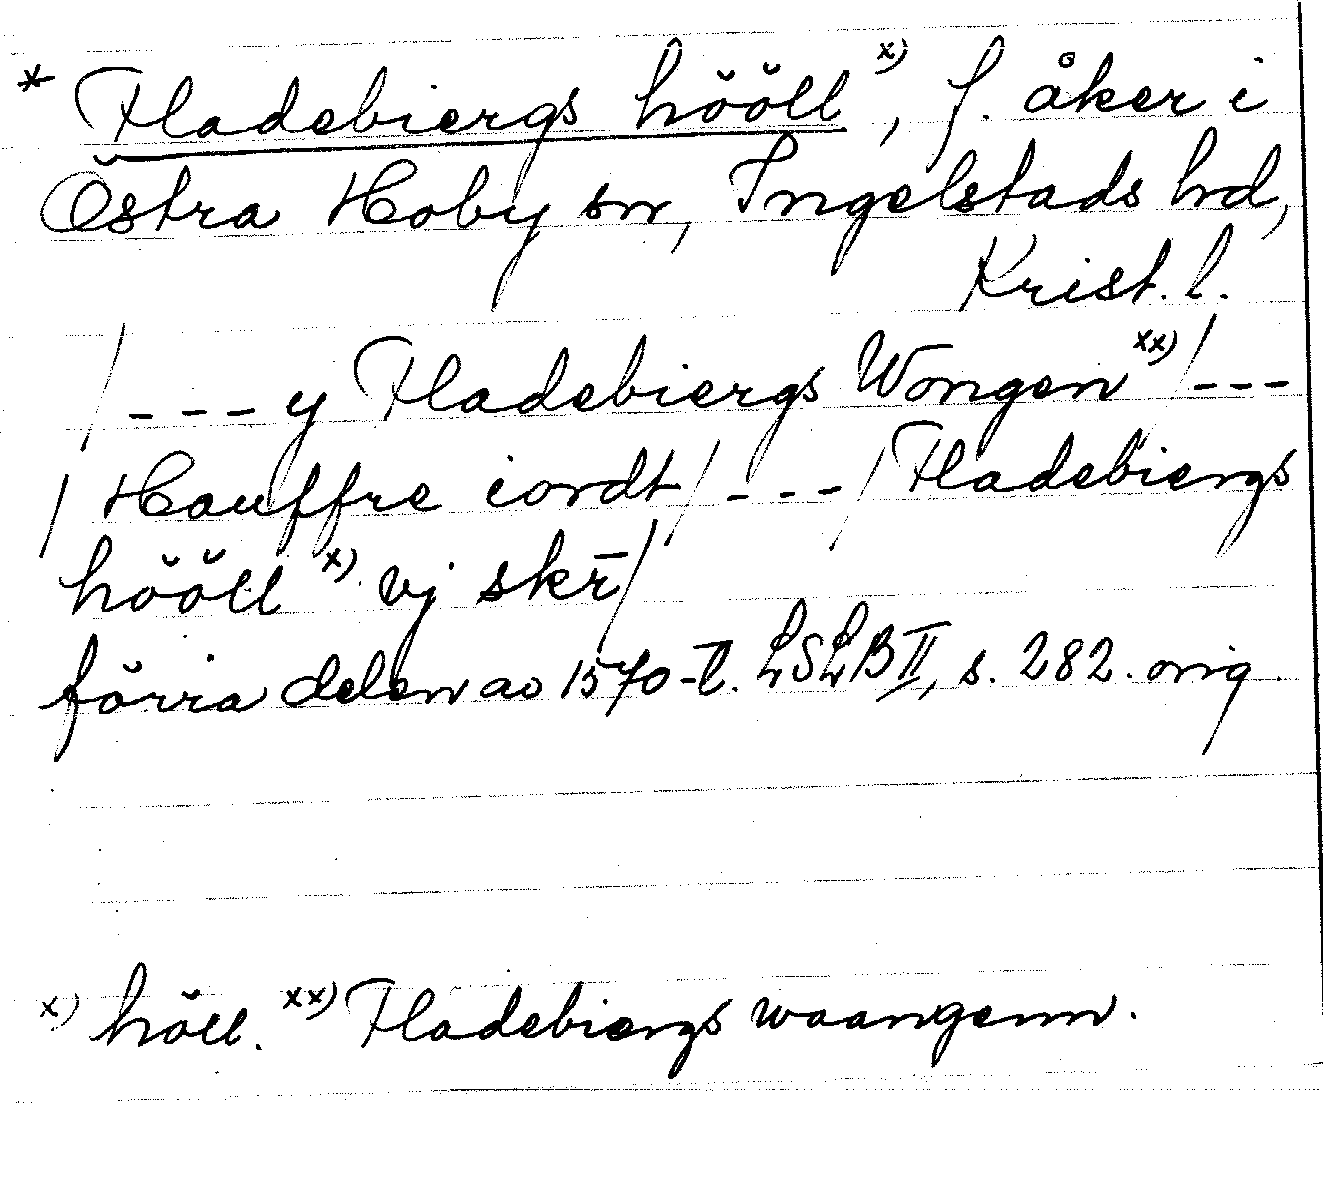 * Fladebiergs hööll x), f. åker i
Östra Hoby sn, Ingelstads hd,
Krist. l.
/ - - - y Fladebiergs Wongen xx) / - - -
/ Hauffre iordt / - - - / Fladebiergs
hööll x) vj skr̄ /
förra delen av 1570-t. LSLB II, s. 282. orig.
x) höll. xx) Fladebiergs waangenn.